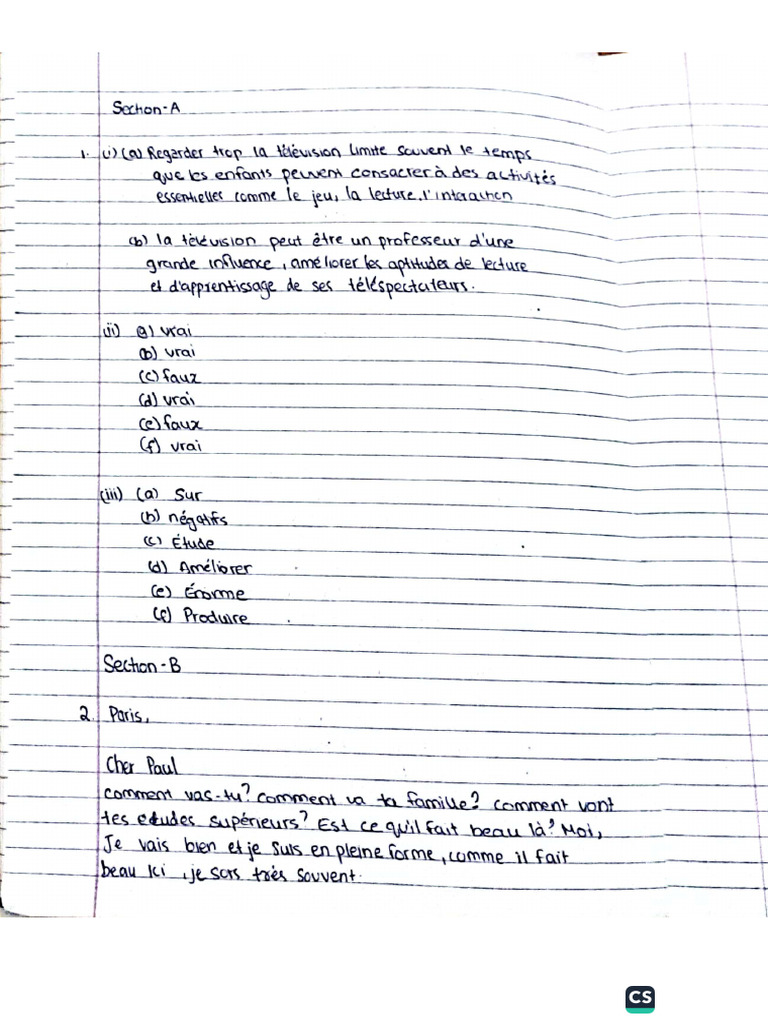 Section-A
1. (i) (a) Regarder trop la télévision limite souvent le temps
que les enfants peuvent consacrer à des activités
essentielles comme le jeu, la lecture, l'interaction
(b) la télévision peut être un professeur d'une
grande influence, améliorer les aptitudes de lecture
et d'apprentissage de ses téléspectateurs.
(ii) a) vrai
(b) vrai
(c) faux
(d) vrai
(e) faux
(f) vrai
(iii) (a) Sur
(b) négatifs
(c) Étude
(d) Améliorer
(e) Énorme
(f) Produire
Section-B
2. Paris,
Cher Paul
comment vas-tu? comment va ta famille? comment vont
tes etudes supérieurs? Est ce qu'il fait beau là? Moi,
Je vais bien et je suis en pleine forme, comme il fait
beau ici, je sors très souvent.
CS